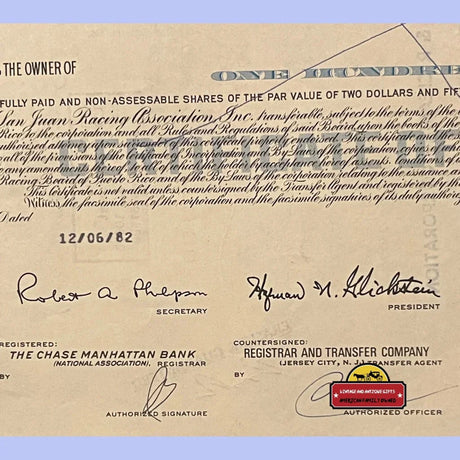 S THE OWNER OF
ONE HUNDRE
FULLY PAID AND NON-ASSESSABLE SHARES OF THE PAR VALUE OF TWO DOLLARS AND FIF
San Juan Racing Association Inc. transferable, subject to the terms of the
Rico to the corporation and all Rules and Regulations of said Board upon the books of the
authorized attorney on surrender of this certificate properly endorsed. This certificate and the
all of the provisions of the Certificate of Incorporation and By-Laws of the corporation
any amendments the holder by acceptance hereof assents. Condition of
Racing Board of Puerto Rico and of the By Laws of the corporation relating to the issuance
This certificate is not valid unless countersigned by the Transfer Agent and registered by the
Witness, the facsimile seal of the corporation and the facsimile signatures of its duly authoriz
Dated
12/06/82
Robert A Phelpson
Hyman N. Glickstein
SECRETARY
PRESIDENT
REGISTERED:
COUNTERSIGNED:
THE CHASE MANHATTAN BANK
REGISTRAR AND TRANSFER COMPANY
(NATIONAL ASSOCIATION), REGISTRAR
(JERSEY CITY, N. J.) TRANSFER AGENT
BY
BY
VINTAGE AND ANTIQUE GIFTS
AMERICAN FAMILY OWNED
AUTHORIZED SIGNATURE
AUTHORIZED OFFICER